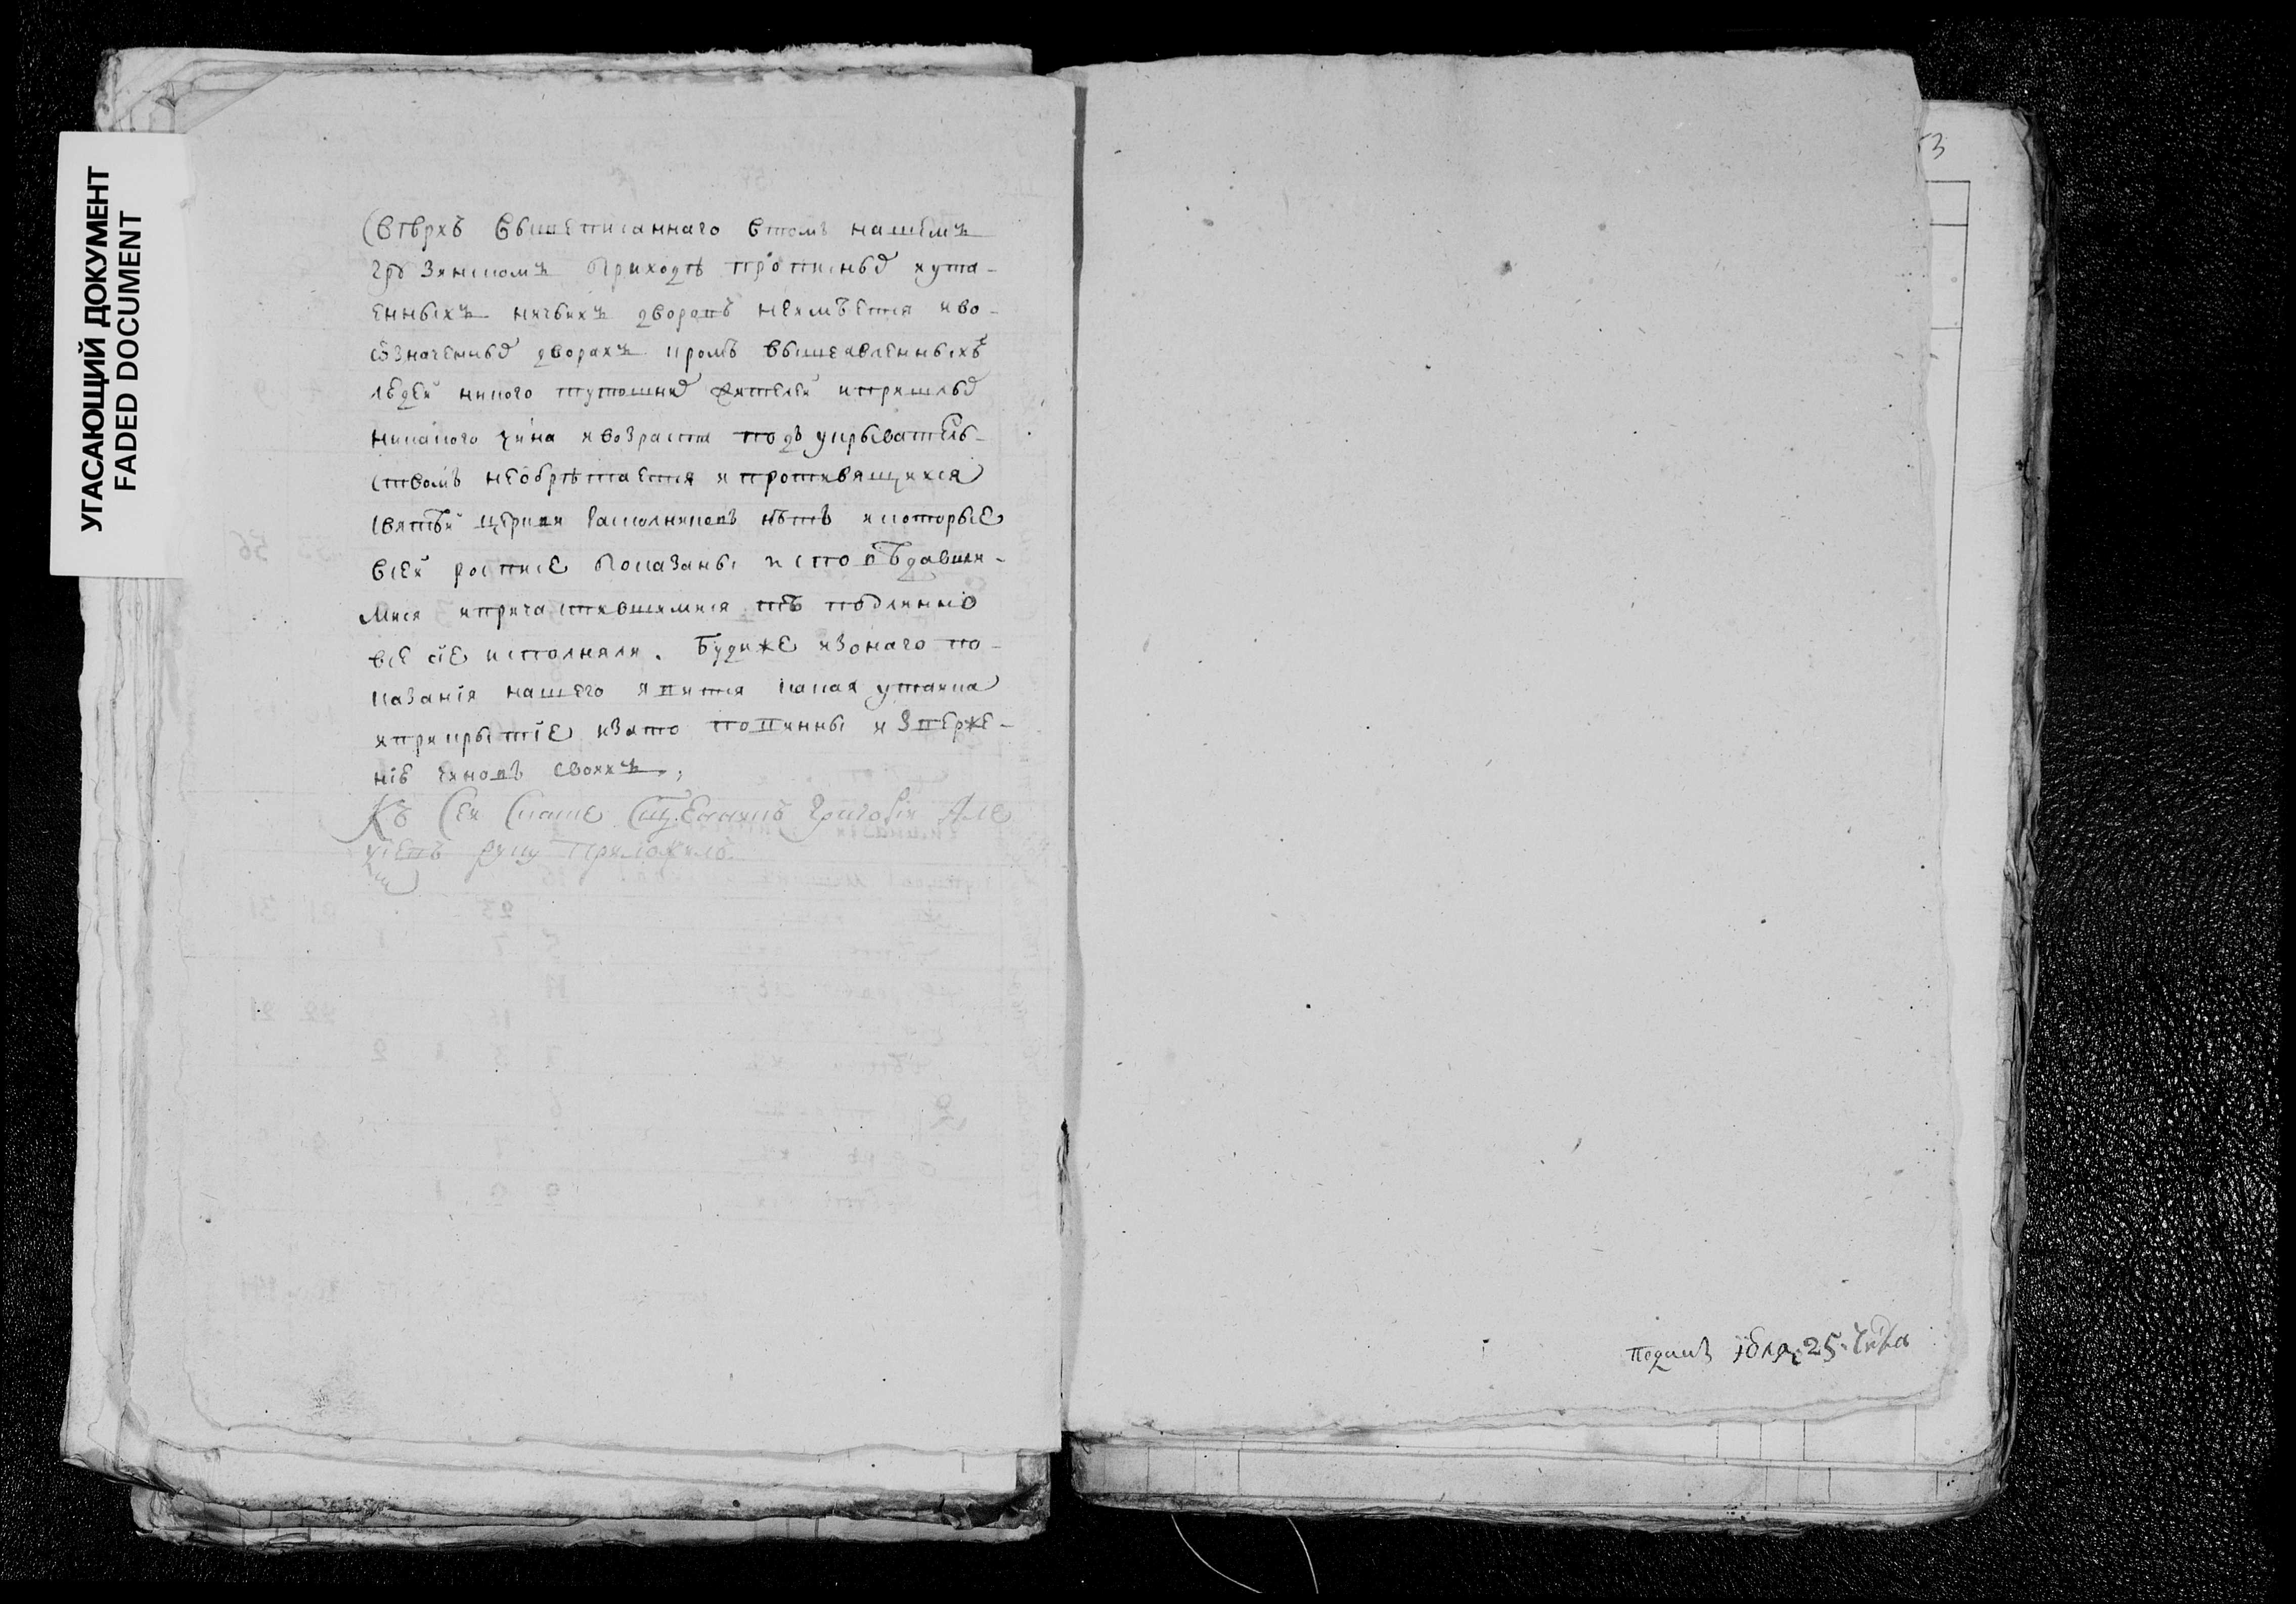 УГАСАЮЩИЙ ДОКУМЕНТ
FADED DOCUMENT
Сверхъ вышеписаннаго втомъ нашемъ
грузинскомъ приходѣ прописныхъ иута-
енныхъ ничьихъ дворовъ неимѣется иво
означенныхъ дворахъ кромѣ вышеявленныхъ
людей никого тутошнихъ жителей ипришлыхъ
никакого чина ивозраста подъ укрыватель-
ствомъ необрѣтается ипротивящихся
святѣй церкви раскольниковъ нѣтъ икоторые
всей росписе показаны исповѣдавши-
мися ипричастившимися тѣ подлинно
все сіе исполняли. Будиже изонаго по-
казанія нашего явится какая утайка
иприкрытіе изато повинны изверже-
ніе чиновъ своихъ.,
Къ Сей Скаске Сщенникъ Григорій Але
ксіевъ руку приложилъ
53
поданъ іюля 25